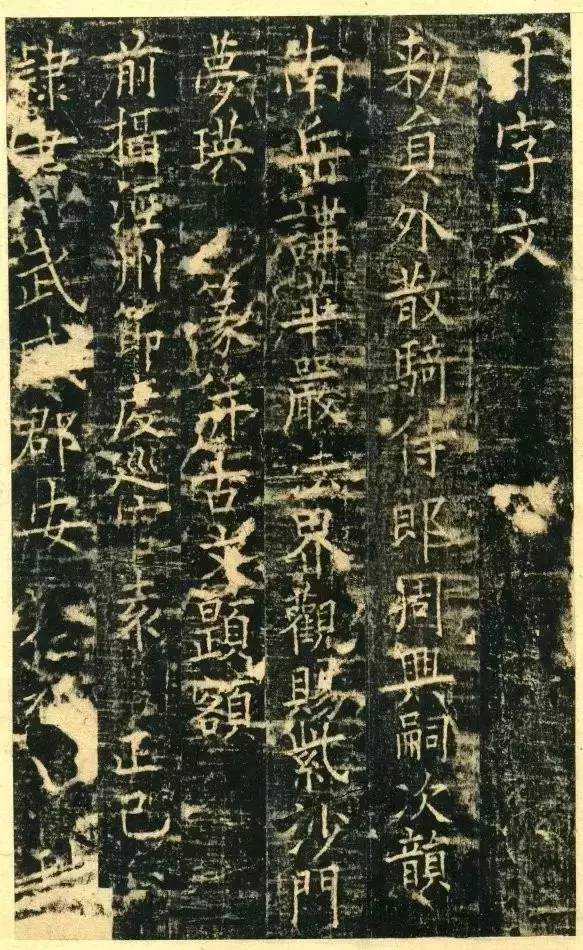 千字文
勑員外散騎侍郎周興嗣次韻
南岳講華嚴法界觀賜紫沙門
夢瑛篆并古文題額
前攝涇州節度巡官袁正己
隸書武威郡安仁裕刊